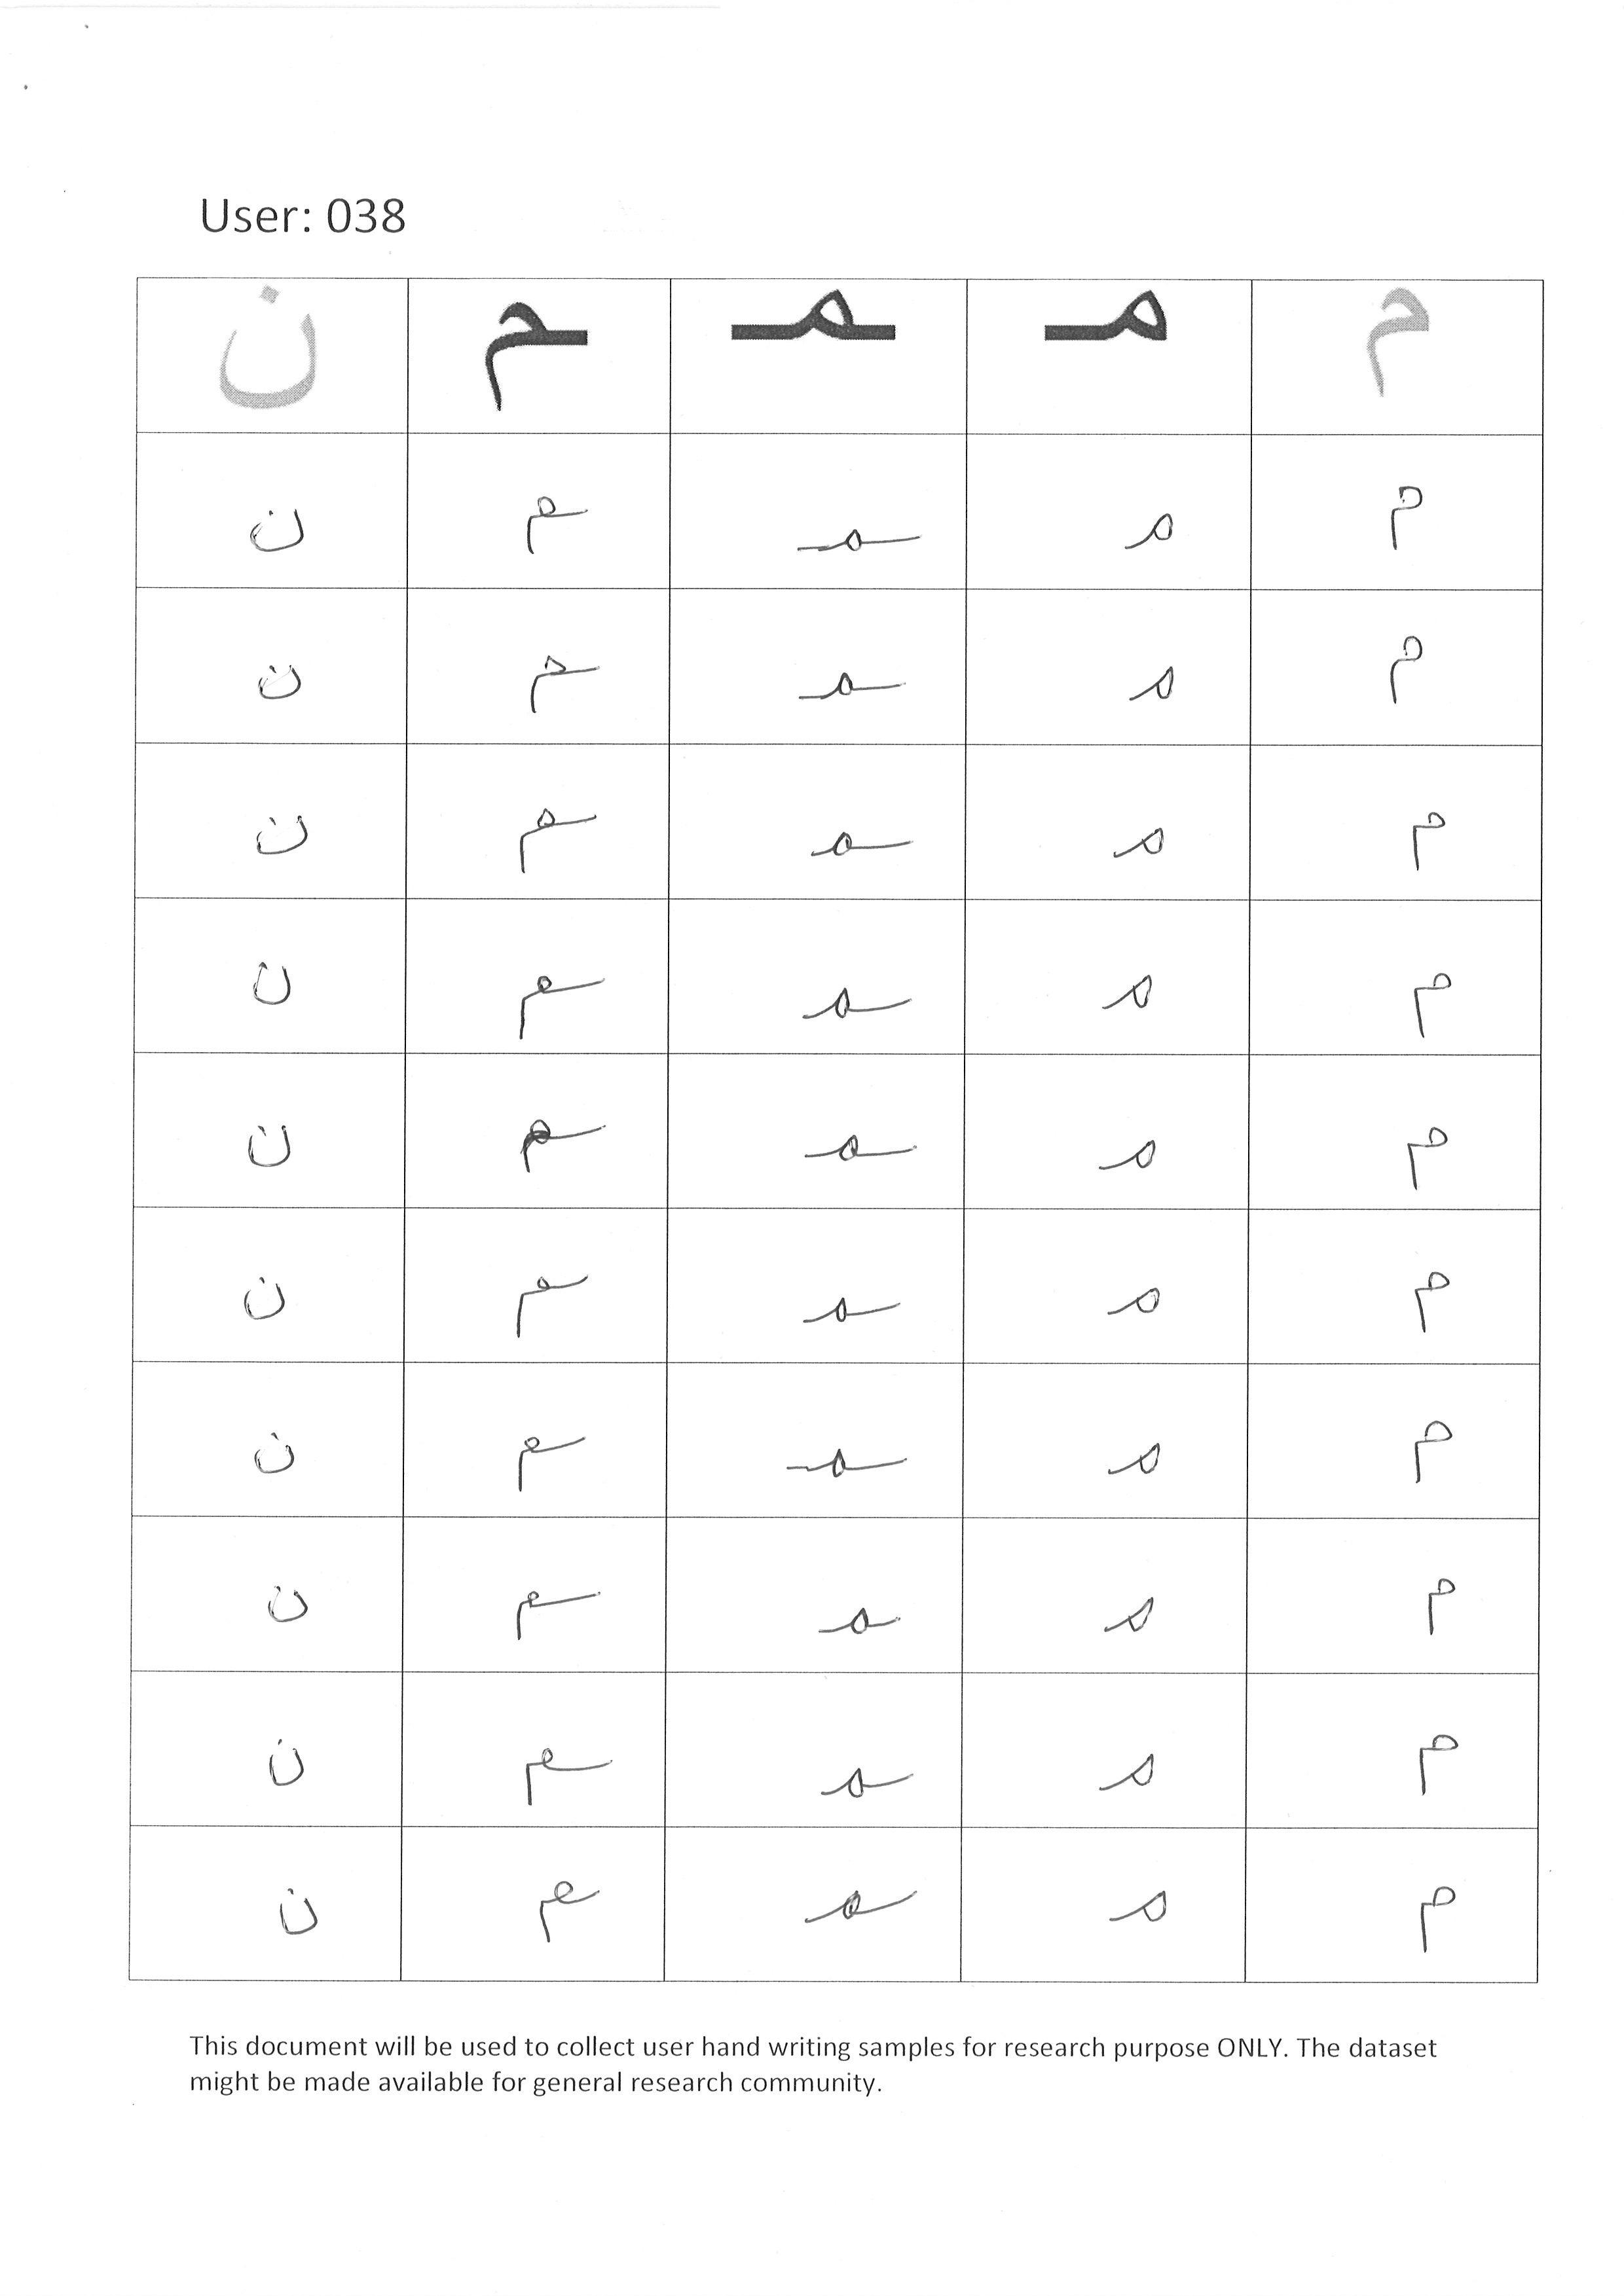 User: 038
م مـ ـمـ ـم ن
م مـ ـمـ ـم ن
م مـ ـمـ ـم ن
م مـ ـمـ ـم ن
م مـ ـمـ ـم ن
م مـ ـمـ ـم ن
م مـ ـمـ ـم ن
م مـ ـمـ ـم ن
م مـ ـمـ ـم ن
م مـ ـمـ ـم ن
م مـ ـمـ ـم ن
This document will be used to collect user hand writing samples for research purpose ONLY. The dataset
might be made available for general research community.